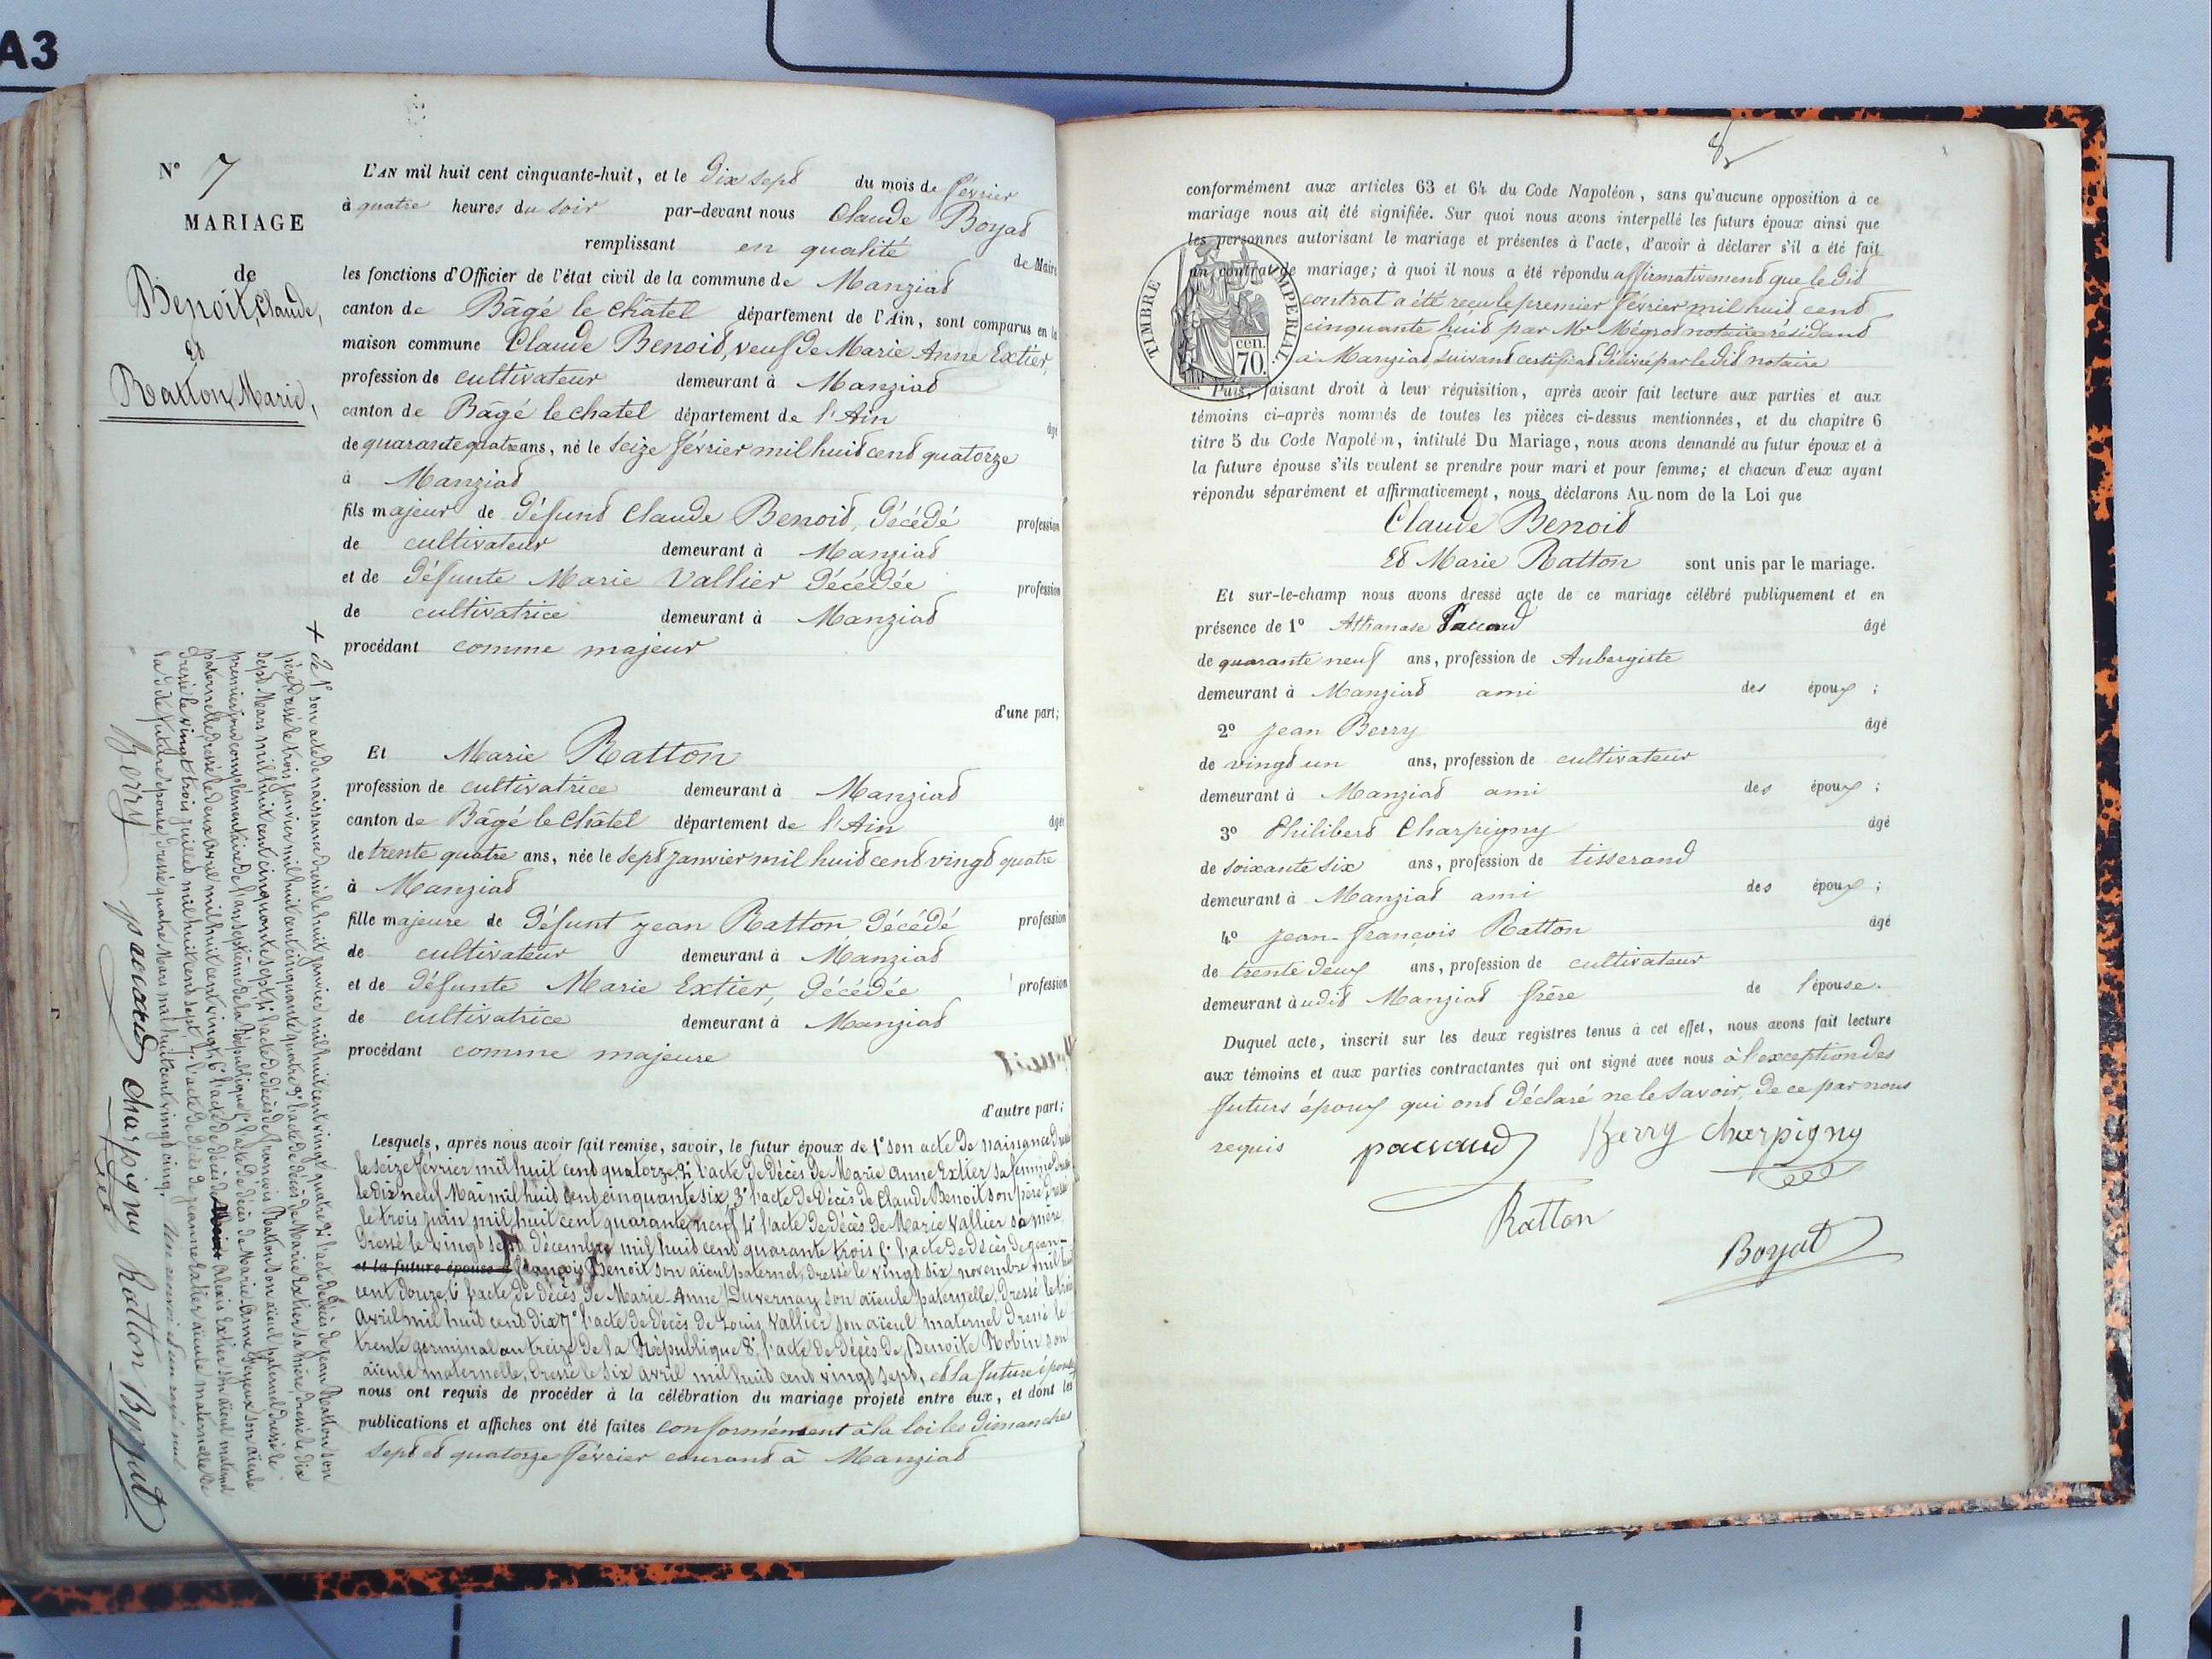 A3
N° 7
MARIAGE
de
Benoit, Claude,
et
Ratton Marie,
L'AN mil huit cent cinquante-huit, et le dix sept du mois de février
à quatre heures du soir par-devant nous Claude Boyat
remplissant en qualité de Maire
les fonctions d'Officier de l'état civil de la commune de Manziat
canton de Bâgé le châtel département de l'Ain, sont comparus en la
maison commune Claude Benoit, veuf de Marie Anne Extier,
profession de cultivateur demeurant à Manziat
canton de Bâgé le chatel département de l'Ain âgé
de quarante quatre ans, né le seize février mil huit cent quatorze
à Manziat
fils majeur de défunt Claude Benoit, décédé profession
de cultivateur demeurant à Manziat
et de défunte Marie Vallier décédée profession
de cultivatrice demeurant à Manziat
procédant comme majeur
d'une part;
Et Marie Ratton
profession de cultivatrice demeurant à Manziat
canton de Bâgé le châtel département de l'Ain âgée
de trente quatre ans, née le sept janvier mil huit cent vingt quatre
à Manziat
fille majeure de défunt jean Ratton décédé profession
de cultivateur demeurant à Manziat
et de défunte Marie Extier, décédée profession
de cultivatrice demeurant à Manziat
procédant comme majeure
d'autre part;
Lesquels, après nous avoir fait remise, savoir, le futur époux de 1° son acte de naissance dressé
le seize février mil huit cent quatorze, 2° l'acte de décès de Marie Anne Extier sa femme dressé
le dix neuf Mai mil huit cent cinquante six, 3° l'acte de décès de Claude Benoit son père dressé
le trois juin mil huit cent quarante neuf 4° l'acte de décès de Marie Vallier sa mère,
dressé le vingt sept décembre mil huit cent quarante trois 5° l'acte de décès de jean-
et la future épouse françois Benoit son aïeul paternel, dressé le vingt six novembre mil huit
cent douze, 6° l'acte de décès de Marie Anne Duvernay son aïeule paternelle, dressé le trois
Avril mil huit cent dix 7° l'acte de décès de Louis Vallier son aïeul maternel dressé le
trente germinal an treize de la République 8° l'acte de décès de Benoite Robin son
aïeule maternelle, dressé le six avril mil huit cent vingt sept, et la future épouse
nous ont requis de procéder à la célébration du mariage projeté entre eux, et dont les
publications et affiches ont été faites conformément à la loi les dimanches
sept et quatorze février courant à Manziat
+ de 1° son acte de naissance dressé le huit janvier mil huit cent vingt quatre 2° l'acte de décès de jean Ratton son
père dressé le trois janvier mil huit cent cinquante quatre 3° l'acte de décès de Marie Extier sa mère, dressé le dix
sept Mars mil huit cent cinquante sept 4° l'acte de décès de françois Ratton son aïeul paternel dressé le
premier jour complémentaire de l'an septième de la République 5° l'acte de décès de Marie Anne son aïeule
paternelle dressé le deux avril mil huit cent vingt, 6° l'acte de décès de Alexis Extier son aïeul maternel
dressé le vingt trois juillet mil huit cent sept, 7° l'acte de décès de jeanne Extier aïeule maternelle de
la dite future épouse dressé quatre Mars mil huit cent vingt cinq.
Berry paccaud charpigny Ratton Boyat
8
conformément aux articles 63 et 64 du Code Napoléon, sans qu'aucune opposition à ce
mariage nous ait été signifiée. Sur quoi nous avons interpellé les futurs époux ainsi que
les personnes autorisant le mariage et présentes à l'acte, d'avoir à déclarer s'il a été fait
un contrat de mariage; à quoi il nous a été répondu affirmativement que le dit
contrat a été reçu le premier février mil huit cent
cinquante huit par Me Mégrot notaire résidant
à Manziat, suivant certificat délivré par le dit notaire
TIMBRE IMPERIAL.
cen.
70.
Puis, faisant droit à leur réquisition, après avoir fait lecture aux parties et aux
témoins ci-après nommés de toutes les pièces ci-dessus mentionnées, et du chapitre 6
titre 5 du Code Napoléon, intitulé Du Mariage, nous avons demandé au futur époux et à
la future épouse s'ils veulent se prendre pour mari et pour femme; et chacun d'eux ayant
répondu séparément et affirmativement, nous déclarons Au nom de la Loi que
Claude Benoit
Et Marie Ratton sont unis par le mariage.
Et sur-le-champ nous avons dressé acte de ce mariage célébré publiquement et en
présence de 1° Athanase Paccaud âgé
de quarante neuf ans, profession de Aubergiste
demeurant à Manziat ami des époux ;
2° jean Berry âgé
de vingt un ans, profession de cultivateur
demeurant à Manziat ami des époux ;
3° Philibert Charpigny âgé
de soixante six ans, profession de tisserand
demeurant à Manziat ami des époux ;
4° jean-françois Ratton âgé
de trente deux ans, profession de cultivateur
demeurant à udit Manziat frère de l'épouse.
Duquel acte, inscrit sur les deux registres tenus à cet effet, nous avons fait lecture
aux témoins et aux parties contractantes qui ont signé avec nous à l'exception des
futurs époux qui ont déclaré ne le savoir, de ce par nous
requis paccaud Berry charpigny
Ratton
Boyat